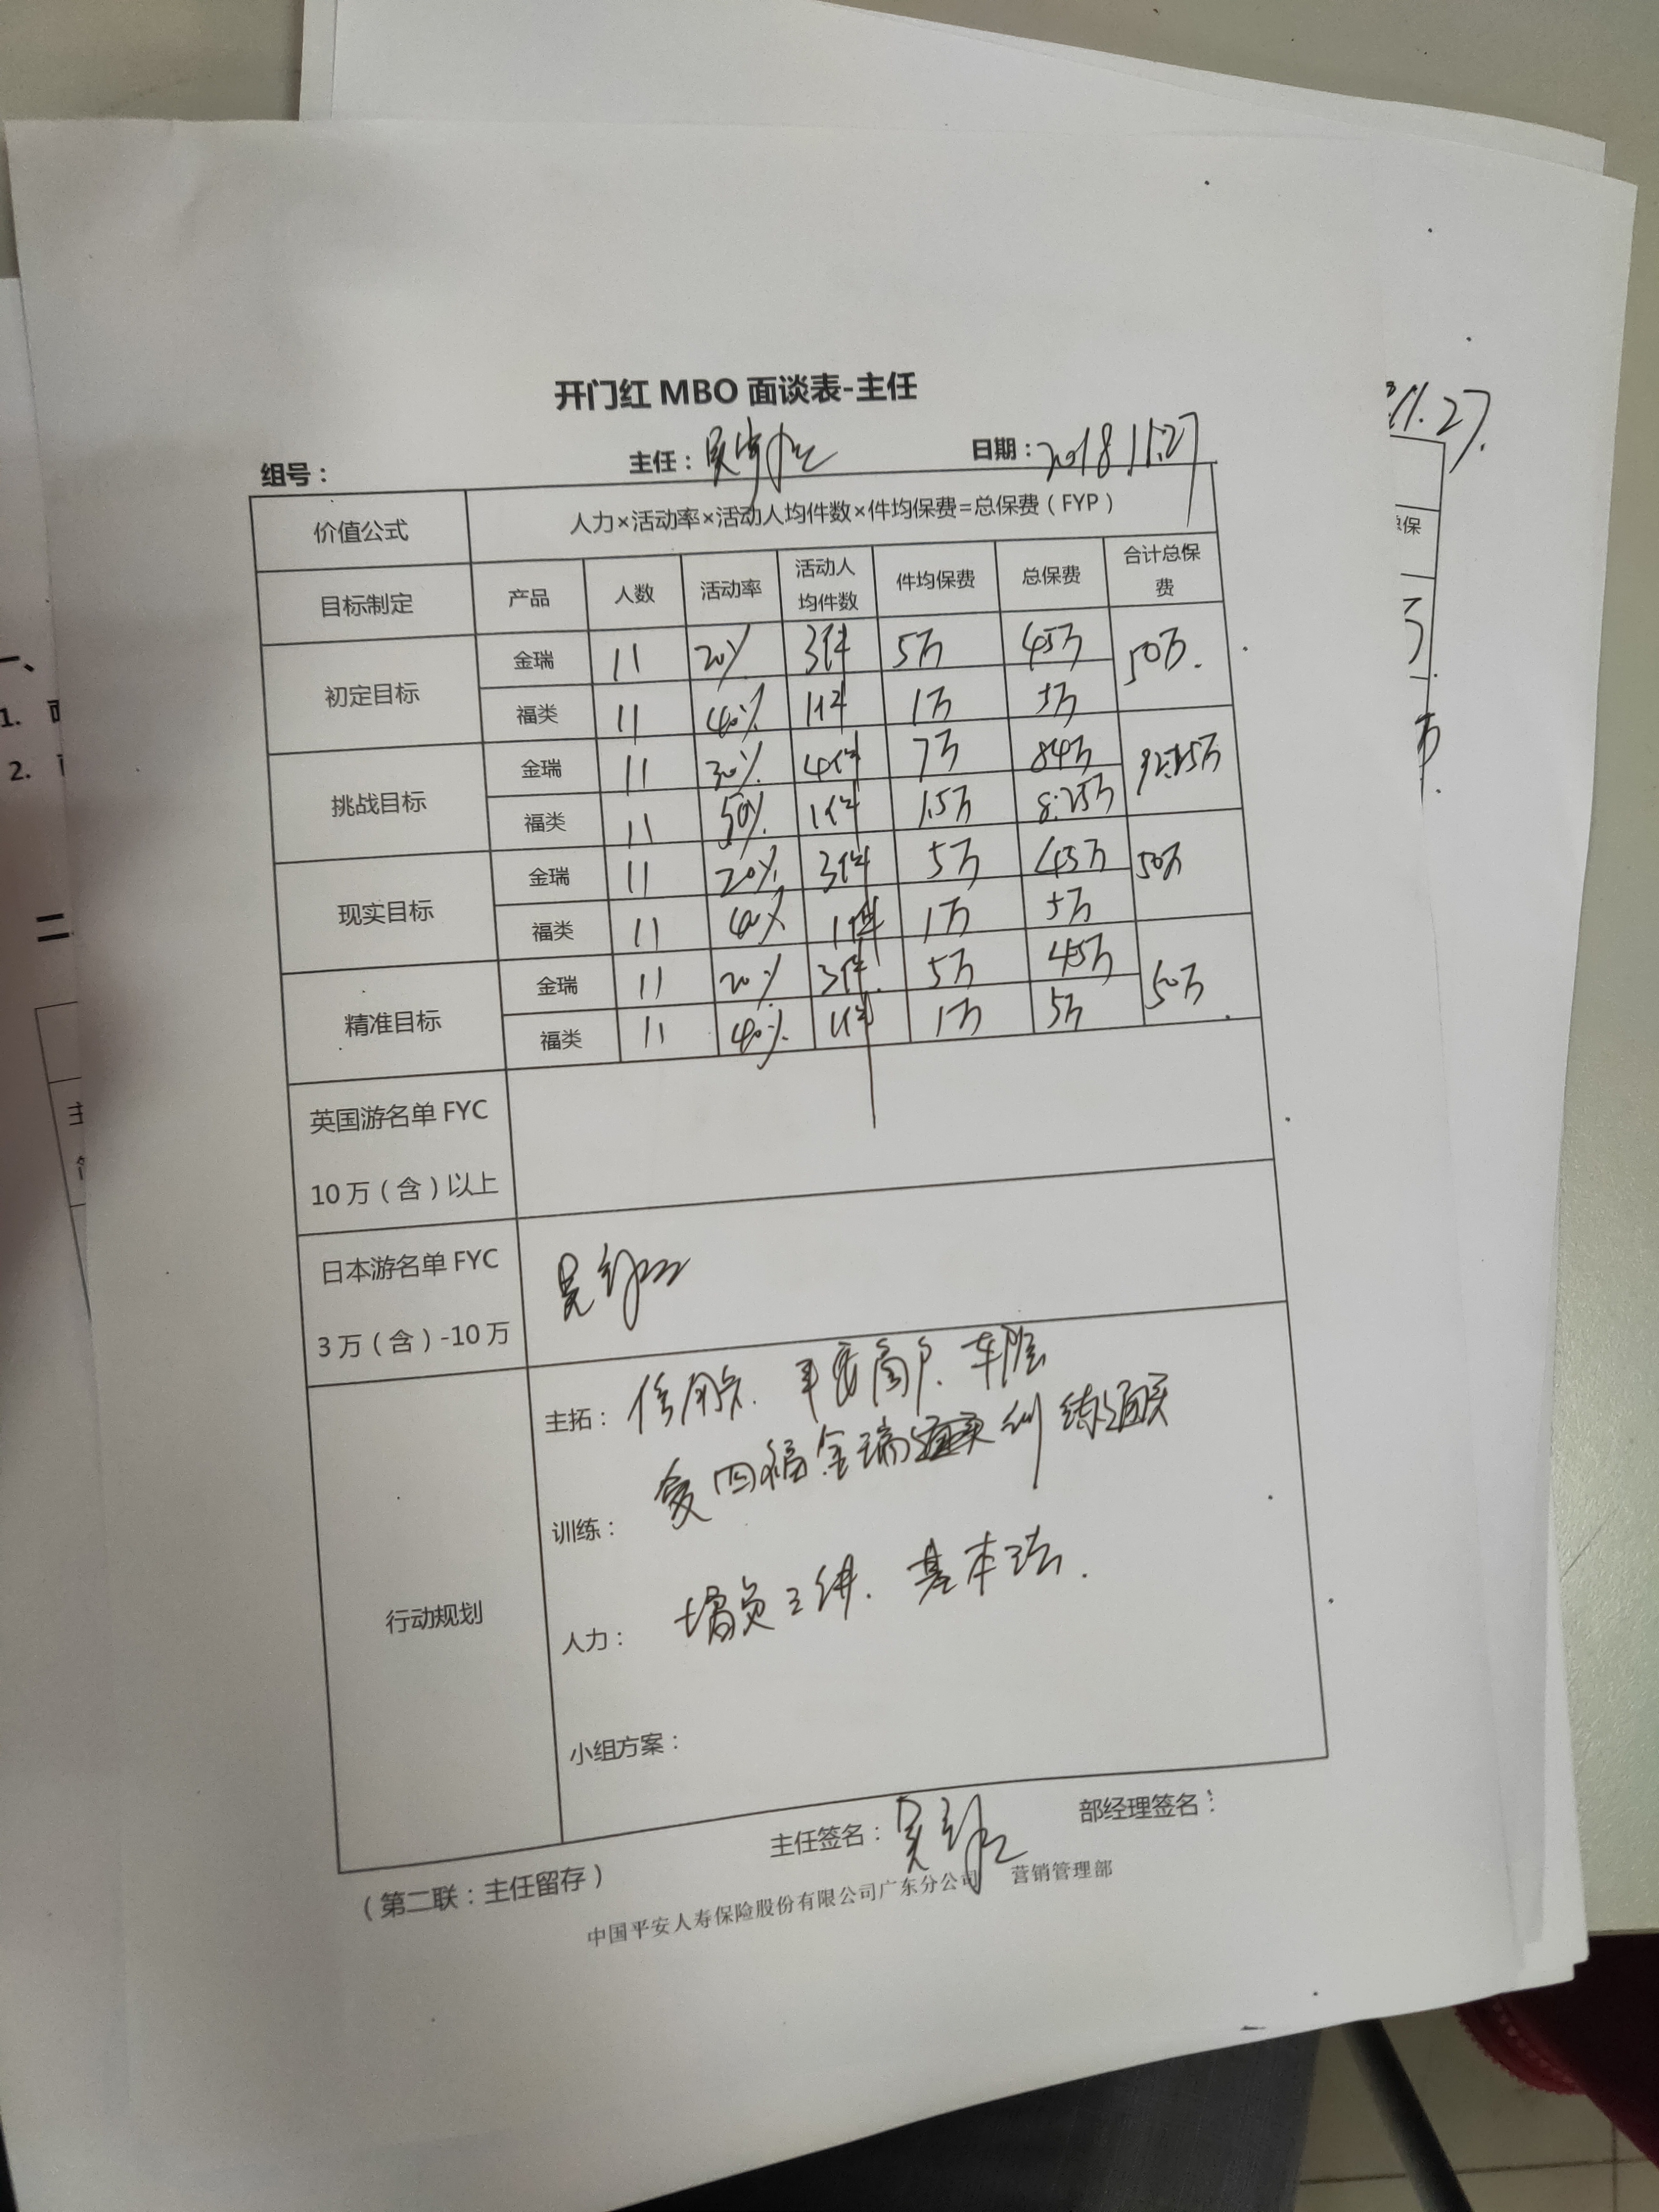 开门红 MBO 面谈表-主任
组号： 主任： 日期：2018.11.27
价值公式 人力×活动率×活动人均件数×件均保费=总保费（FYP）
目标制定 产品 人数 活动率 活动人均件数 件均保费 总保费 合计总保费
初定目标 金瑞 11 20% 3件 5万 45万 50万.
福类 11 40% 1件 1万 5万
挑战目标 金瑞 11 30% 4件 7万 84万
福类 11 50% 1件 1.5万 8.25万
现实目标 金瑞 11 20% 3件 5万 45万 50万
福类 11 40% 1件 1万 5万
精准目标 金瑞 11 20% 3件. 5万 45万 50万
福类 11 40% 1件 1万 5万
英国游名单 FYC
10 万（含）以上
日本游名单 FYC
3 万（含）-10 万
行动规划
主拓： 信用卡. 车险
训练： 金瑞 训练通关
人力： 增员 基本法.
小组方案：
主任签名： 部经理签名：
（第二联：主任留存）
中国平安人寿保险股份有限公司广东分公司 营销管理部
11.27.
总保
一、
1.
2.
二